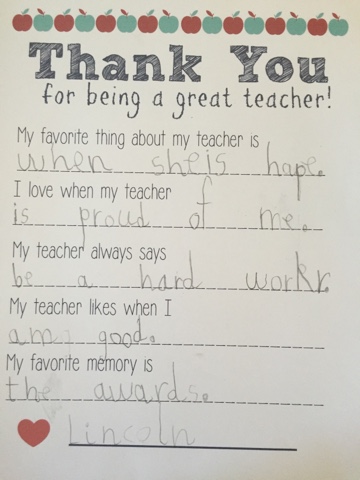 Thank You
for being a great teacher!
My favorite thing about my teacher is
when sheis hape.
I love when my teacher
is proud of me.
My teacher always says
be a hard workr.
My teacher likes when I
am good.
My favorite memory is
the awards.
Lincoln